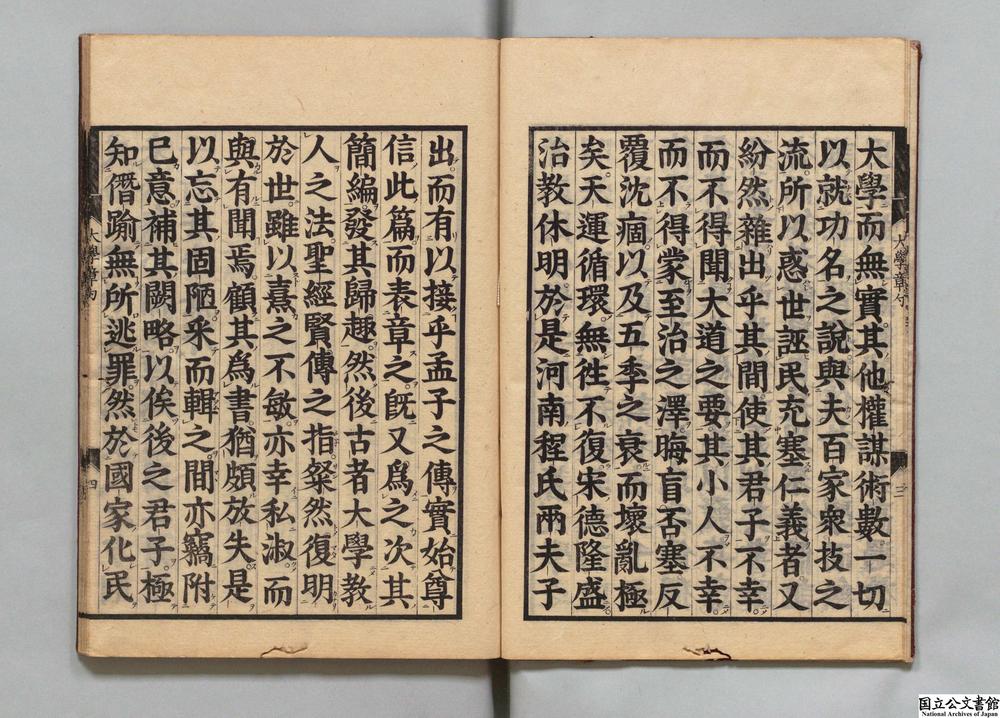 大學而無實其他權謀術數一切
以就功名之說與夫百家衆技之
流所以惑世誣民充塞仁義者又
紛然雜出乎其間使其君子不幸
而不得聞大道之要其小人不幸
而不得蒙至治之澤晦盲否塞反
覆沈痼以及五季之衰而壞亂極
矣天運循環無徃不復宋德隆盛
治教休明於是河南程氏兩夫子
大學章句
三
出而有以接乎孟子之傳實始尊
信此篇而表章之旣又爲之次其
簡編發其歸趣然後古者大學教
人之法聖經賢傳之指粲然復明
於世雖以熹之不敏亦幸私淑而
與有聞焉顧其爲書猶頗放失是
以忘其固陋采而輯之間亦竊附
己意補其闕略以俟後之君子極
知僭踰無所逃罪然於國家化民
大學章句
四
国立公文書館
National Archives of Japan